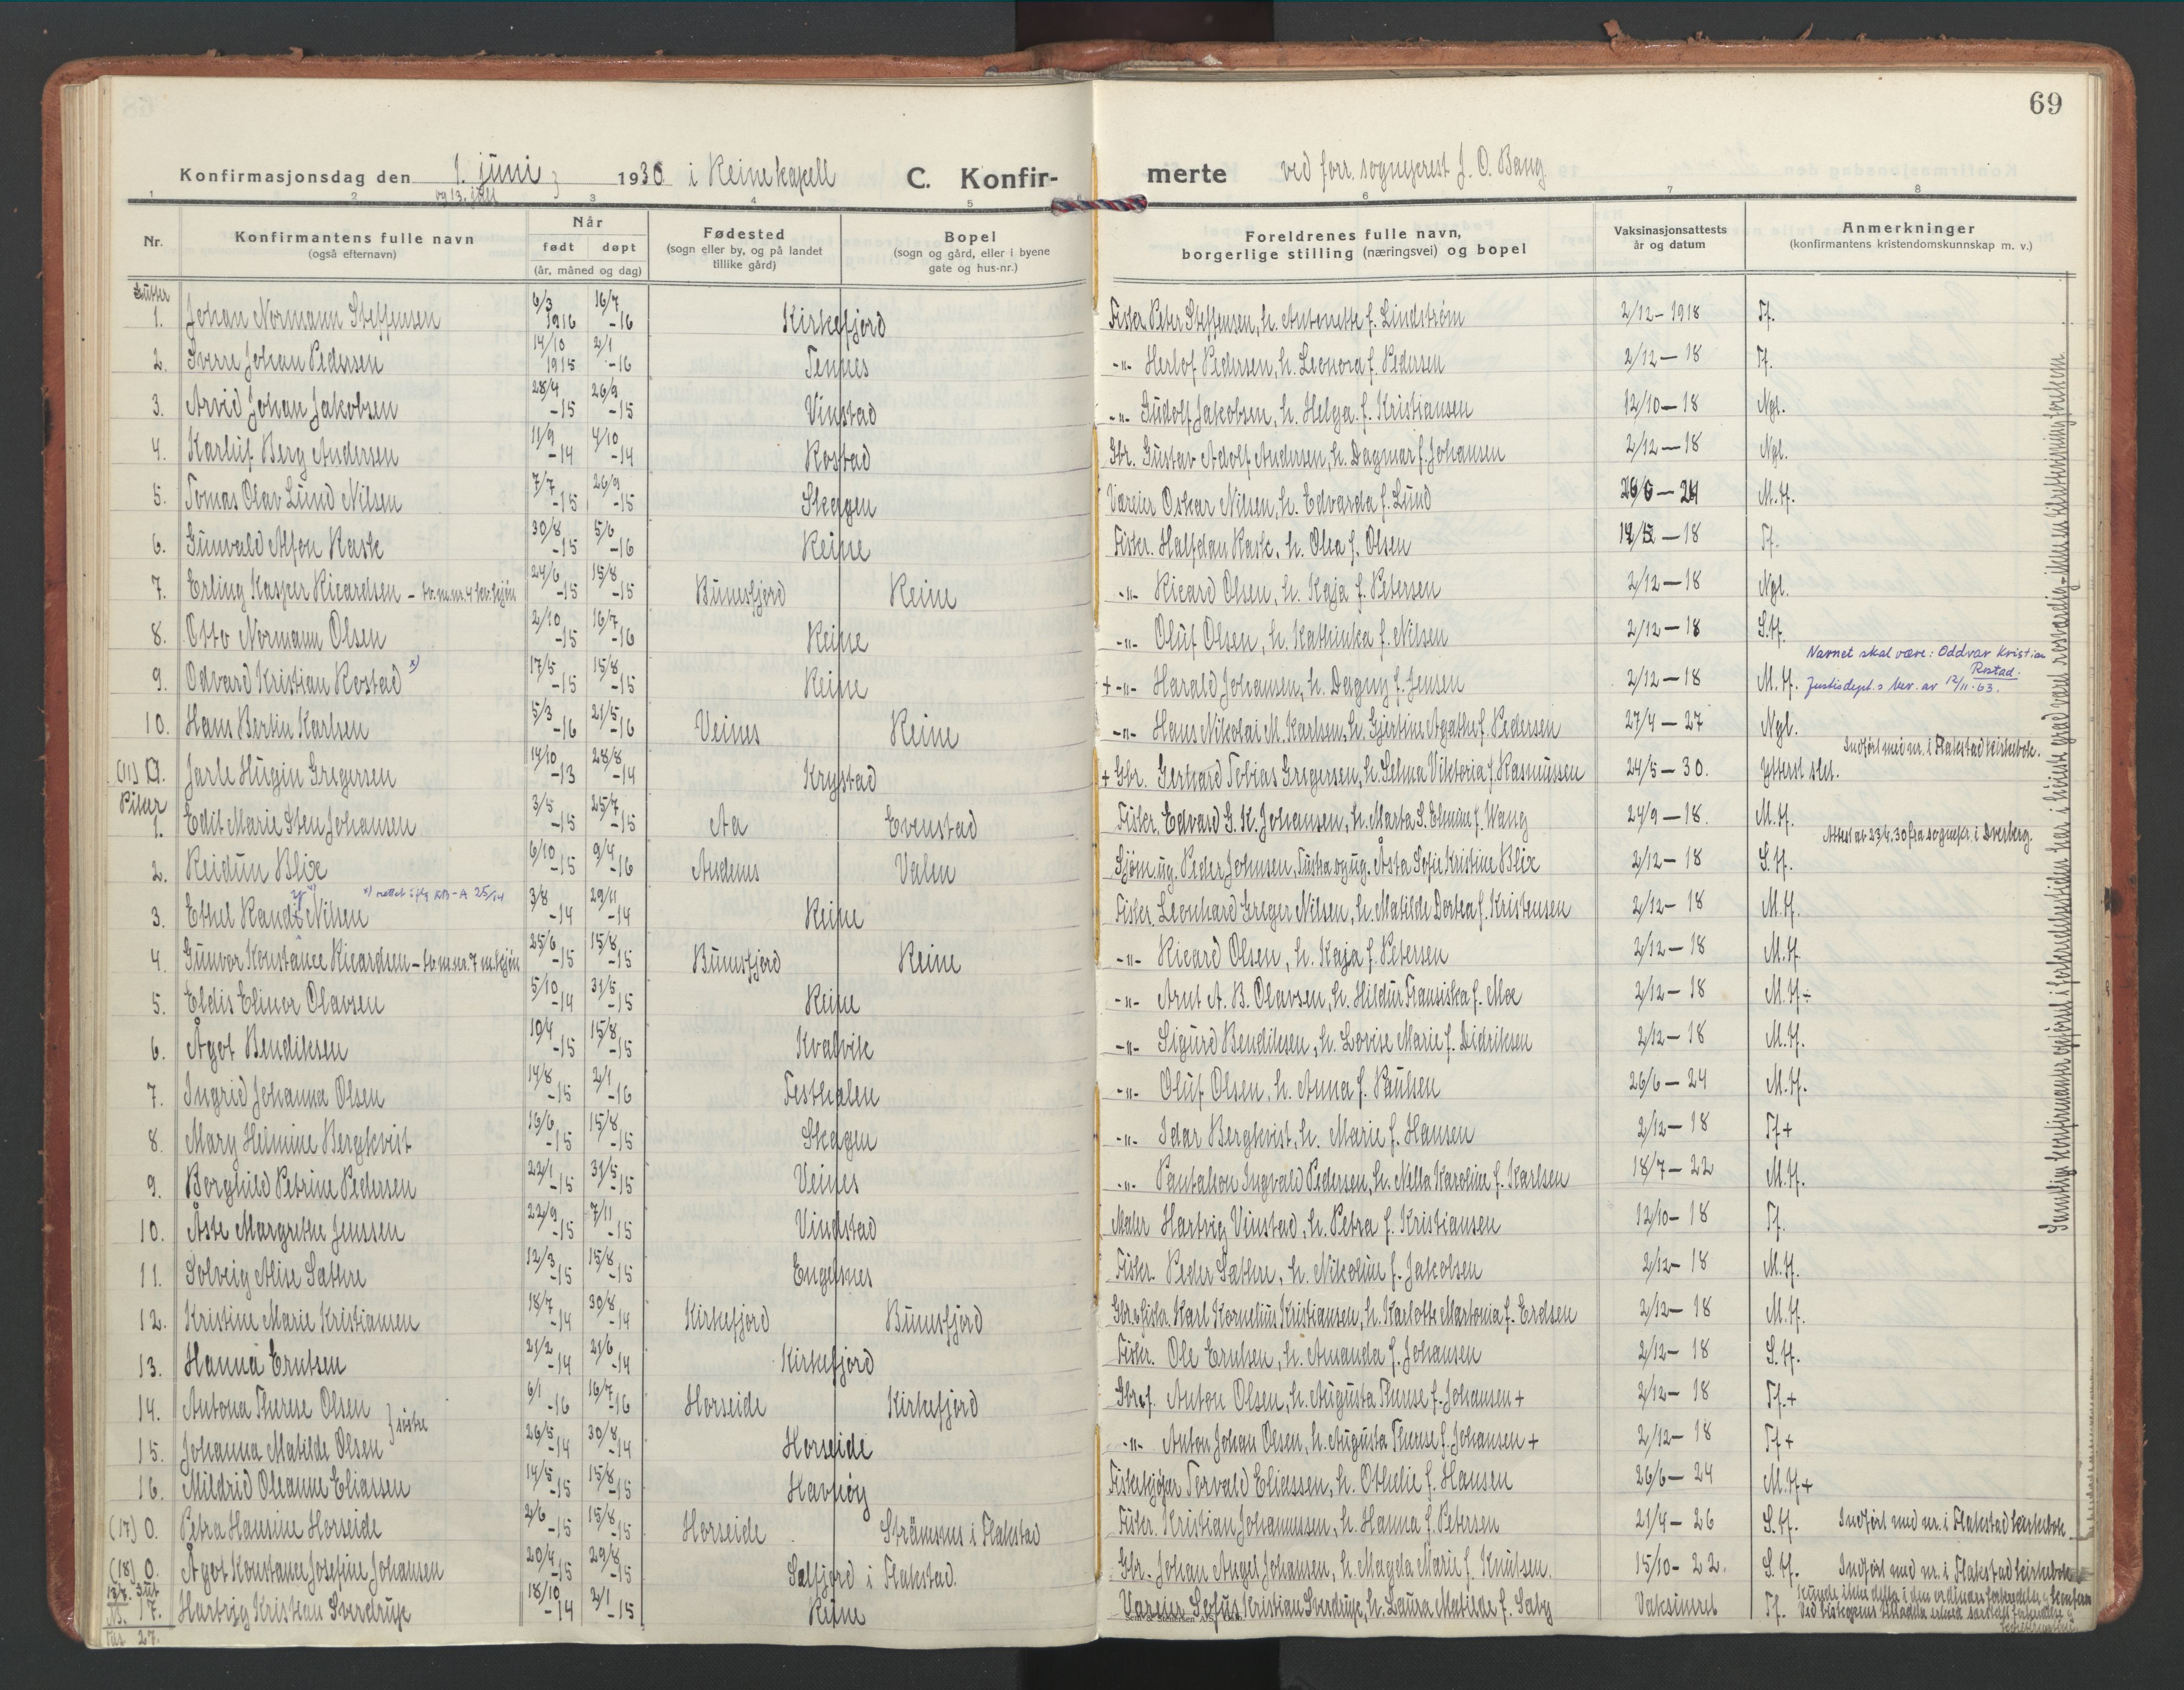 69
Konfirmasjonsdag den 1. juni 1930 i Reine kapell C. Konfir- merte ved forr. sogneprest J. O. Bang
og 13. juli
1 2 3 4 5 6 7 8
Nr. Konfirmantens fulle navn (også efternavn) Når født døpt (år, måned og dag) Fødested (sogn eller by, og på landet tillike gård) Bopel (sogn og gård, eller i byene gate og hus-nr.) Foreldrenes fulle navn, borgerlige stilling (næringsvei) og bopel Vaksinasjonsattests år og datum Anmerkninger (konfirmantens kristendomskunnskap m. v.)
Gutter
1. Johan Normann Steffensen 6/3 1916 16/7 -16 Kirkefjord Fisker Peter Steffensen, h. Antonette f. Lindstrøm 2/12-1918 Tf.
2. Sverre Johan Pedersen 14/10 1915 2/1 -16 Tennes -"- Herlof Pedersen, h. Leonora f. Pedersen 2/12-18 Tf.
3. Arvid Johan Jakobsen 28/4 -15 26/9 -15 Vinstad -"- Gudolf Jakobsen, h. Helga f. Kristiansen 12/10-18 Ngl.
4. Karluf Berg Andersen 11/9 -14 4/10 -14 Rostad Gbr. Gustav Adolf Andersen, h. Dagmar f. Johansen 2/12-18 Ngl.
5. Tomas Olav Lund Nilsen 7/7 -15 26/9 -15 Skagen Væreier Oskar Nilsen, h. Edvarda f. Lund 26/6-24 M.H.
6. Gunvald Alfon Rask 30/8 -15 5/6 -16 Reine Fisker. Halfdan Rask, h. Olea f. Olsen -18 Tf.
7. Erling Kasper Ricardsen - tv.m.nr. 4 kv.kjøn 24/6 -15 15/8 -15 Bunesfjord Reine -"- Ricard Olsen, h. Kaja f. Petersen 2/12-18 Ngl.
8. Otto Normann Olsen 2/10 -15 16/7 -16 Reine -"- Oluf Olsen, h. Kathinka f. Nilsen 2/12-18 S.H.
9. Odvard Kristian Rostad x) 17/5 -15 15/8 -15 Reine + -"- Harald Johansen, h. Dagny f. Jensen 2/12-18 M.H. Navnet skal være: Oddvar Kristian Rostad. Justisdept.s bev. av 12/11-63.
10. Hans Bertin Karlsen 5/3 -16 21/5 -16 Veines Reine -"- Hans Nikolai M. Karlsen, h. Gjertine Agathe f. Pedersen 27/4-27 Ngl.
(11) 0. Jarle Hugin Gregersen 14/10 -13 28/8 -14 Krystad + Gbr. Gerhard Tobias Gregersen, h. Selma Viktoria f. Rasmussen 24/5-30. Ytterst slet. Indført med nr. i Flakstad kirkebok.
Piker
1. Edit Marie Sten Johansen 3/5 -15 25/7 -15 Aa Evenstad Fisker. Edvard G. K. Johansen, h. Marta S. Elmine f. Wang 24/9-18. M.H.
2. Reidun Blix 6/10 -15 9/4 -16 Andenes Valen Sjøm. ug. Peder Johnsen, Tustna og ug. Åsta Sofie Kristine Blix 2/12-18 S.H. Attest av 23/4.30 fra sognepr. i Dverberg.
x) rettet iflg KB-A 25/14
3. Ethel Randi Nilsen 3/8 -14 29/11 -14 Reine Fisker. Leonhard Greger Nilsen, h. Matilde Dortea f. Kristensen 2/12-18 M.H.
4. Gunvor Konstance Ricardsen - tv.m.nr. 7 m.kjøn 25/6 -15 15/8 -15 Bunesfjord Reine -"- Ricard Olsen, h. Kaja f. Petersen 2/12-18 M.H.
5. Eldis Elinor Olavsen 5/10 -14 31/5 -15 Reine -"- Arnt A. B. Olavsen, h. Hildur Fransiska f. Moe 2/12-18 M.H÷
6. Ågot Bendiksen 10/4 -15 15/8 -15 Kvalvik -"- Sigurd Bendiksen, h. Lovise Marie f. Didriksen 2/12-18 M.H.
7. Ingrid Johanna Olsen 14/8 -15 2/1 -16 Festhelen -"- Oluf Olsen, h. Anna f. Paulsen 26/6-24 M.H.
8. Mary Helmine Bergkvist 16/6 -15 15/8 -15 Skagen -"- Idar Bergkvist, h. Marie f. Hansen 2/12-18 Tf+
9. Borghild Petrine Pedersen 22/1 -15 31/5 -15 Veines -"- Pantaleon Ingvald Pedersen, h. Nella Karoline f. Karlsen 18/7-22 M.H.
10. Åste Margrethe Jenssen 22/9 -15 7/11 -15 Vindstad Maler Hartvig Vinstad, h. Petra f. Kristiansen 12/10-18 Tf.
11. Solveig Alise Sæthre 12/3 -15 15/8 -15 Engelsnes Fisker. Peder Sæthre, h. Nikoline f. Jakobsen 2/12-18 M.H.
12. Kristine Marie Kristiansen 18/7 -14 30/8 -14 Kirkefjord Bunesfjord Gbr. & fisker. Karl Kornelius Kristiansen, h. Karlotte Martonia f. Erdsen 2/12-18 M.H.
13. Hanna Erntsen 21/2 -14 21/6 -14 Kirkefjord Fisker. Ole Erntsen, h. Amanda f. Johansen 2/12-18 S.H.
14. Antona Therese Olsen } søstre 6/1 -16 16/7 -16 Horseide Kirkefjord Gbr. & f. Anton Olsen, h. Augusta Therese f. Johansen + 2/12-18 Tf.+
15. Johanna Matilde Olsen 26/5 -14 30/8 -14 Horseide -"- Anton Johan Olsen, h. Augusta Therese f. Johansen + 2/12-18 Tf+
16. Mildrid Oleanne Eliassen 14/5 -15 15/8 -15 Havnøy Fiskekjøper Torvald Eliassen, h. Othelie f. Hansen 26/6-24 M.H+
(17) 0. Petra Hansine Horseide 2/6 -15 15/8 -15 Horseide Strømsnes i Flakstad Fisker. Kristian Johannessen, h. Hanna f. Petersen 21/4-26 S.H. Indført med nr. i Flakstad kirkebok.
(18) 0. Ågot Konstance Josefine Johansen 20/4 -15 29/8 -15 Selfjord i Flakstad. Gbr. Johan Angel Johansen, h. Magda Marie f. Knutsen. 15/10-22. S.H. Indført med nr. i Flakstad kirkebok
13/7. Gut
17. Hartvig Kristian Sverdrup 18/10 -14 2/1 -15 Reine Væreier Sofus Kristian Sverdrup, h. Laura Matilde f. Saby Vaksinert Tf. Kunde ikke delta i den ordinære forberedelse & konfirm. Ved biskopens tillatelse særskilt forberedelse &
27.
Samtlige konfirmanner opført i forberedelsestiden har i høieste grad været rosverdig